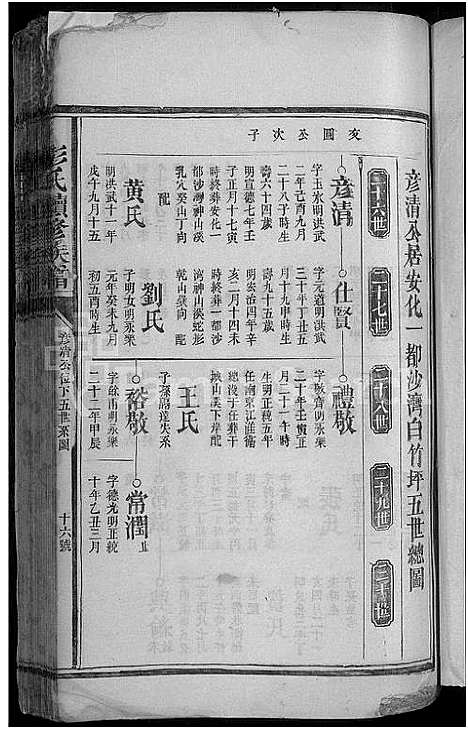 彦清公居安化一都沙灣白竹坪五世總圖
二十六世
二十七世
二十八世
二十九世
三十世
友圖公次子
彦清
字玉水明洪武
二年己酉九月
二十八子時生
壽六十四歲
明宣德七年壬
子正月十七寅
時終葬安化一
都沙灣神山溪
乳穴癸山丁向
配
黄氏
明洪武十一年
戊午九月十五
仕賢
字元道明洪武
三十年丁丑五
月十九申時生
壽九十五歲
明弘治四年辛
亥二月十四未
時終葬一都沙
灣神山溪蛇形
乾山巽向 配
劉氏
子明女明永樂
元年癸未九月
初五酉時生
禮敬
字敬齊明永樂
二十年壬寅正
月二十一午時
生明正統五年
任南京江淮衛
總旗没于任葬干
城山溪下岸配
王氏
子孫紹遠失系
裕敬
字餘甫明永樂
二十二年甲辰
常潤
字德光明正統
十年乙丑三月
彭氏續修族譜
彦清公位下五世系圖
十六號